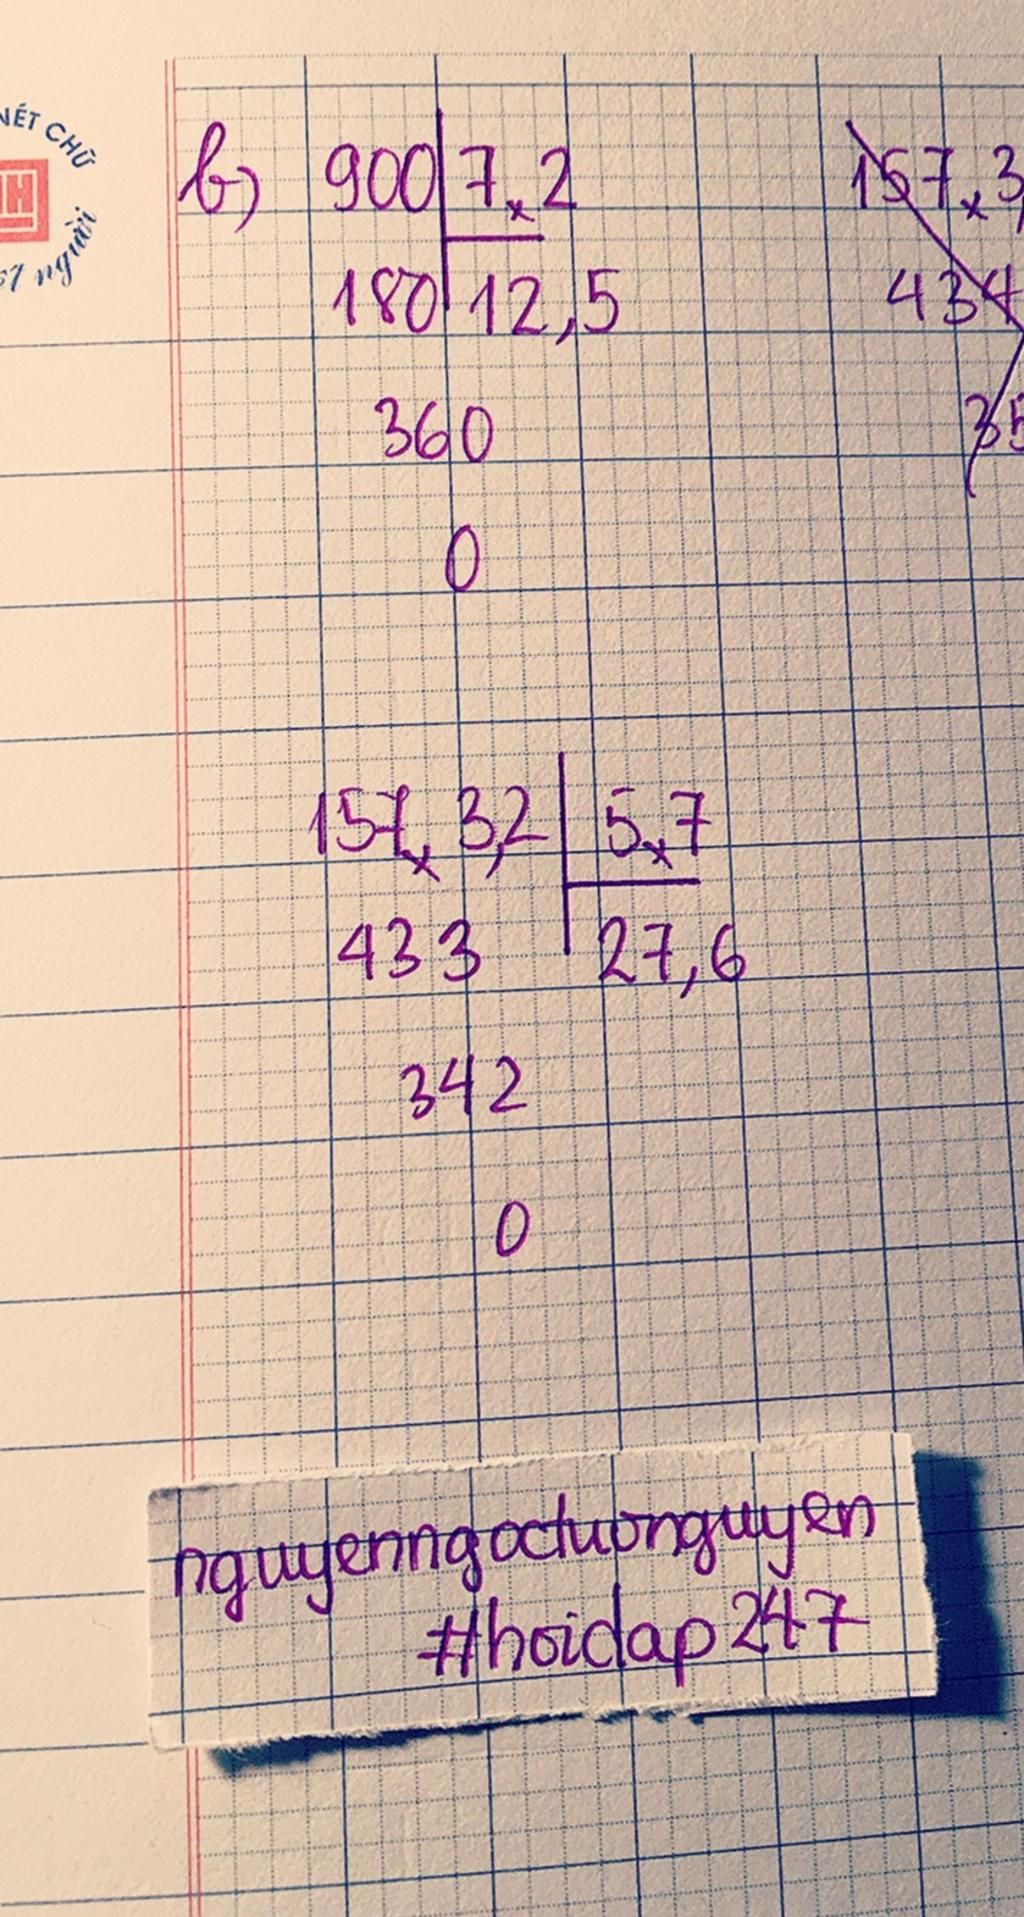 NÉT CHỮ
người
b) 900 7,2
180 12,5
360
0
157,3
434
35
157,3,2 5,7
433 27,6
342
0
nguyenngoctuonguyen
#hoidap247